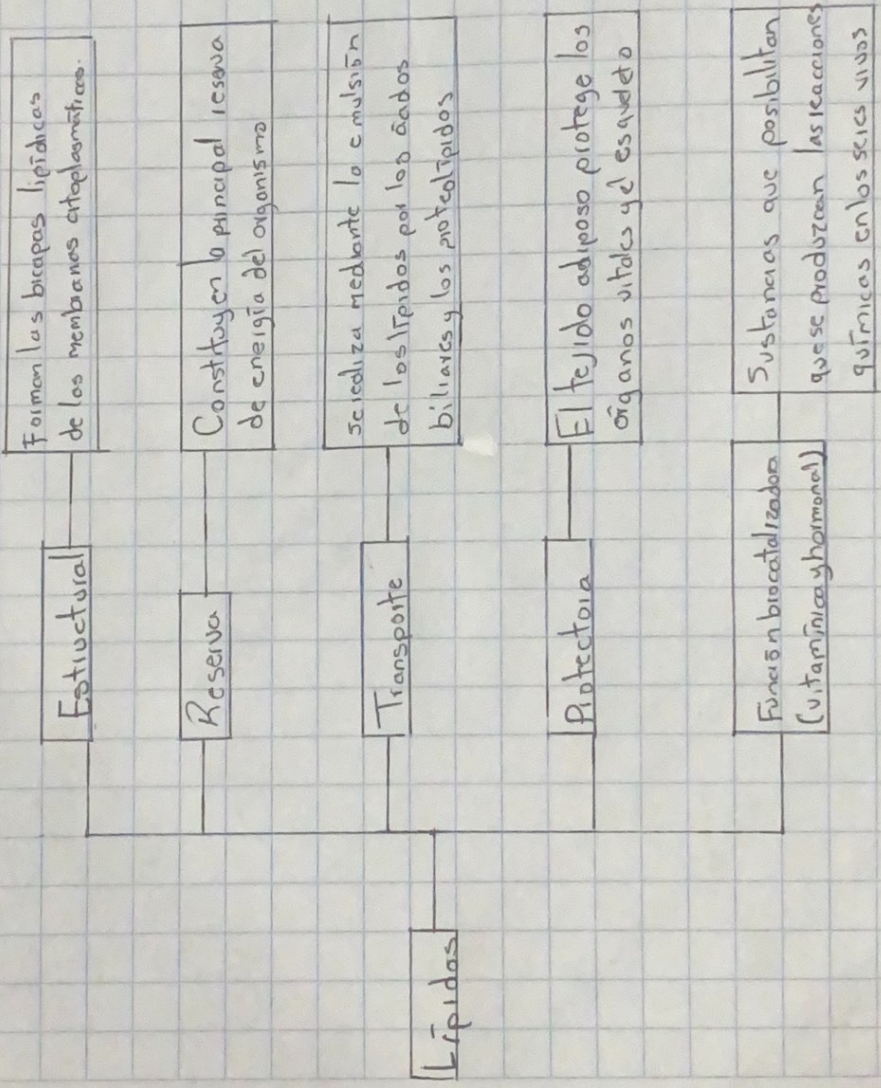 Lípidos
Estructural
Forman las bicapas lipídicas
de las membranas citoplasmáticas.
Reserva
Constituyen la principal reserva
de energía del organismo
Transporte
Se realiza mediante la emulsión
de los lípidos por los ácidos
biliares y los proteolípidos
Protectora
El tejido adiposo protege los
órganos vitales y el esqueleto
Función biocatalizadora
(vitamínica y hormonal)
Sustancias que posibilitan
que se produzcan las reacciones
químicas en los seres vivos